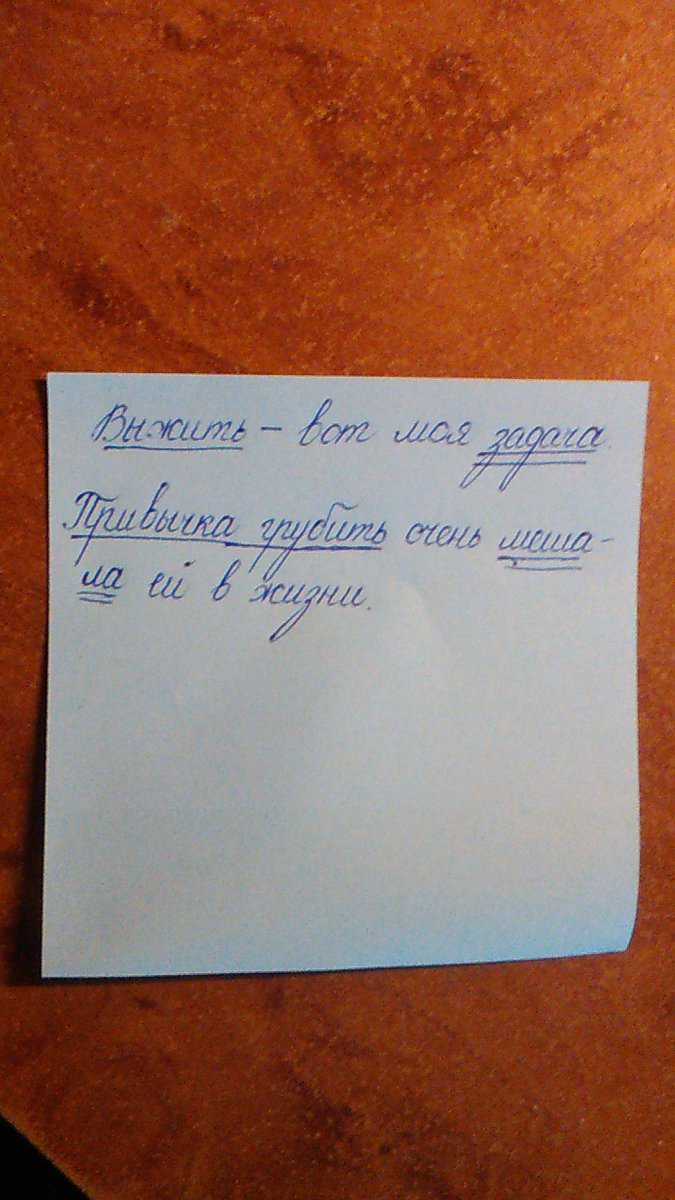 Выжить – вот моя задача.
Привычка грубить очень меша-
ла ей в жизни.